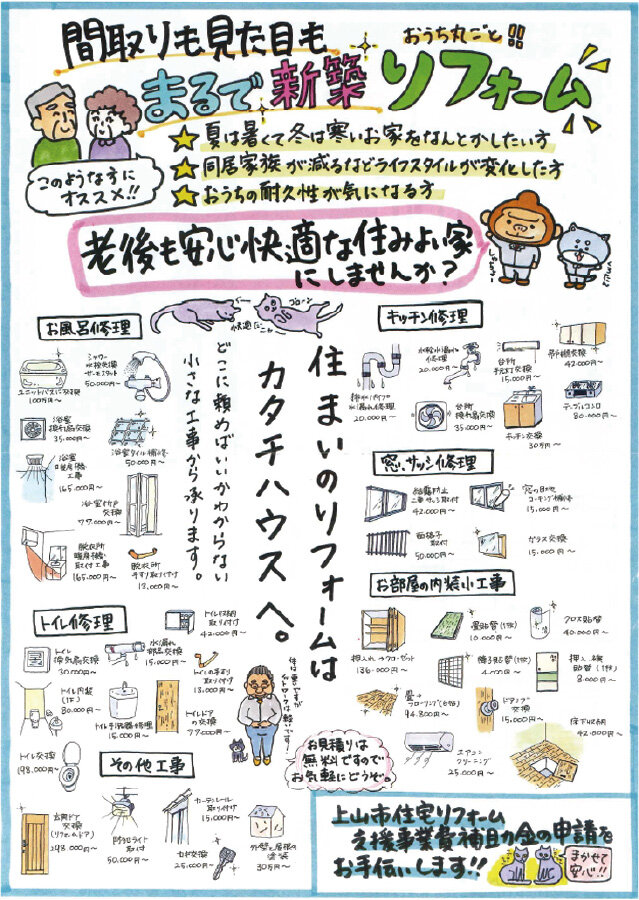 間取りも見た目も
おうち丸ごと!!
まるで新築リフォーム
このような方に
オススメ!!
★夏は暑くて冬は寒いお家をなんとかしたい方
★同居家族が減るなどライフスタイルが変化した方
★おうちの耐久性が気になる方
老後も安心快適な住みよい家
にしませんか?
快適にゃ
ゴローン
住まいのリフォームは
カタチハウスへ。
どこに頼めばいいかわからない
小さな工事から承ります。
お風呂修理
ユニットバスに交換
100万円〜
シャワー
水栓交換
サーモスタット
50,000円〜
浴室
換気扇交換
35,000円〜
浴室タイル補修
50,000円〜
浴室
暖房機
工事
165,000円〜
浴室ドア
交換
77,000円〜
脱衣所
暖房機
取付工事
165,000円〜
脱衣所
手すり取り付け
13,000円〜
キッチン修理
排水パイプ
水漏れ修理
20,000円〜
水栓水漏れ
修理
20,000円〜
台所
手元灯交換
15,000円〜
吊戸棚交換
42,000円〜
台所
換気扇交換
35,000円〜
キッチン交換
30万円〜
テーブルコンロ
80,000円〜
窓、サッシ修理
結露防止
二重サッシ取付
42,000円〜
窓の目地
コーキング補修
15,000円〜
面格子
取付
50,000円〜
ガラス交換
15,000円〜
お部屋の内装小工事
押入れ→クローゼット
136,000円〜
畳貼替(1枚)
10,000円〜
クロス貼替
40,000円〜
障子貼替(1枚)
4,000円〜
押入 襖
貼替(1枚)
8,000円〜
畳→
フローリング(6帖)
94,300円〜
ドアノブ
交換
15,000円〜
床下収納
42,000円〜
エアコン
クリーニング
25,000円〜
トイレ修理
トイレ
換気扇交換
30,000円〜
水漏れ
部品交換
15,000円〜
トイレ収納
取り付け
42,000円〜
トイレ手すり
取り付け
13,000円〜
トイレ内装
(1F)
80,000円〜
トイレ手洗器修理
15,000円〜
トイレドア
の交換
77,000円〜
トイレ交換
198,000円〜
体は重いですが
フットワークは軽いです!
お見積りは
無料ですので
お気軽にどうぞ。
その他工事
玄関ドア
交換
(リフォームドア)
298,000円〜
防犯ライト
取付
50,000円〜
カーテンレール
取り付け
15,000円〜
カギ交換
25,000円〜
外壁と屋根の
塗装
30万円〜
上山市住宅リフォーム
支援事業費補助金の申請を
お手伝いします!!
まかせて
安心!!